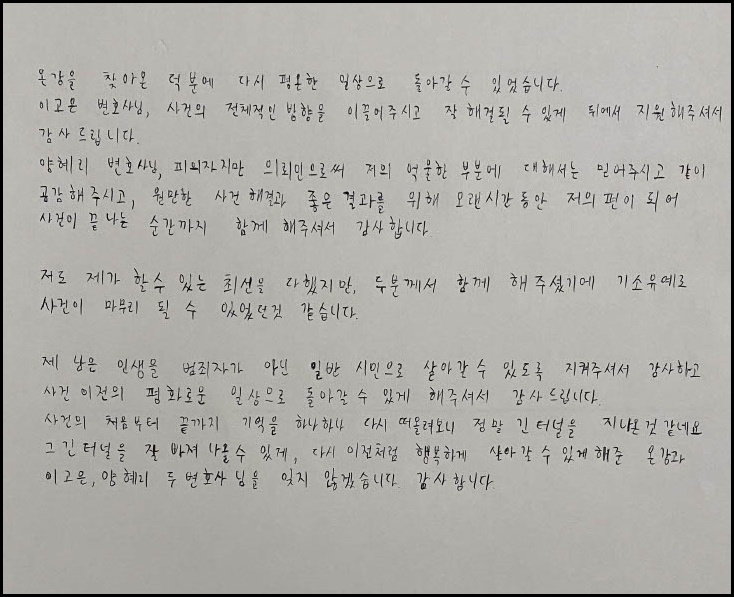 온강을 찾아온 덕분에 다시 평온한 일상으로 돌아갈 수 있었습니다.
이고은 변호사님, 사건의 전체적인 방향을 이끌어주시고 잘 해결될 수 있게 뒤에서 지원해주셔서
감사드립니다.
양혜리 변호사님, 피의자지만 의뢰인으로써 저의 억울한 부분에 대해서는 믿어주시고 같이
공감해주시고, 원만한 사건 해결과 좋은 결과를 위해 오랜시간동안 저의 편이 되어
사건이 끝나는 순간까지 함께 해주셔서 감사합니다.
저도 제가 할 수 있는 최선을 다했지만, 두분께서 함께 해 주셨기에 기소유예로
사건이 마무리 될 수 있었던것 같습니다.
제 남은 인생을 범죄자가 아닌 일반 시민으로 살아갈 수 있도록 지켜주셔서 감사하고
사건 이전의 평화로운 일상으로 돌아갈 수 있게 해주셔서 감사드립니다.
사건의 처음부터 끝까지 기억을 하나하나 다시 떠올려보니 정말 긴 터널을 지나온것 같네요
그 긴 터널을 잘 빠져 나올 수 있게, 다시 이전처럼 행복하게 살아갈 수 있게 해준 온강과
이고은, 양혜리 두 변호사님을 잊지 않겠습니다. 감사합니다.